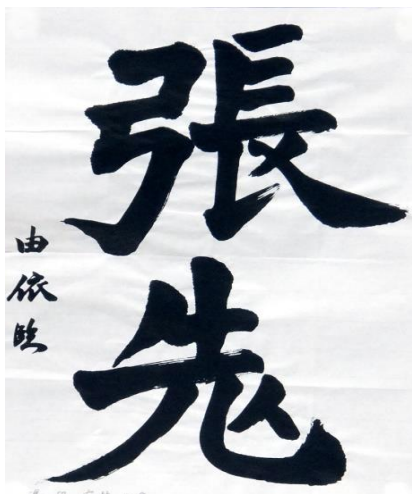 張
先
由依臨